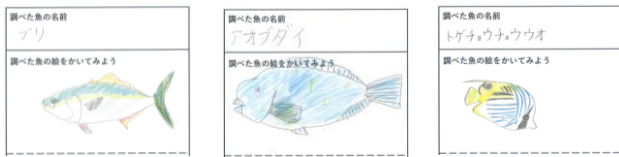 調べた魚の名前
ブリ
調べた魚の絵をかいてみよう
調べた魚の名前
アオブダイ
調べた魚の絵をかいてみよう
調べた魚の名前
トゲチョウチョウウオ
調べた魚の絵をかいてみよう